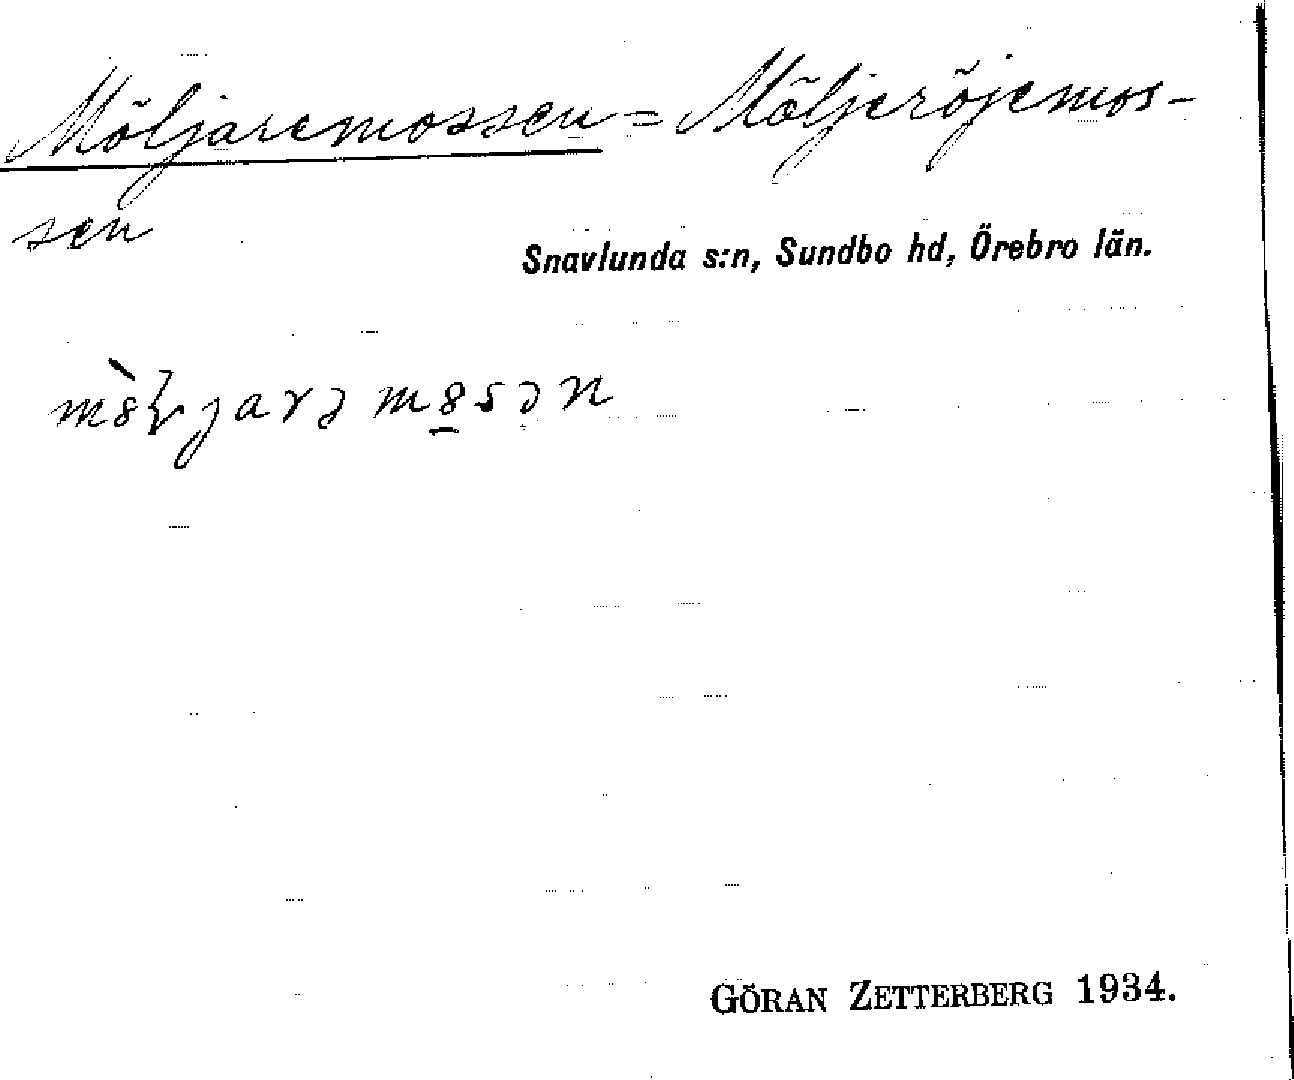 Möljaremossen = Möljeröjemos-
sen
Snavlunda s:n, Sundbo hd, Örebro län.
GÖRAN ZETTERBERG 1934.